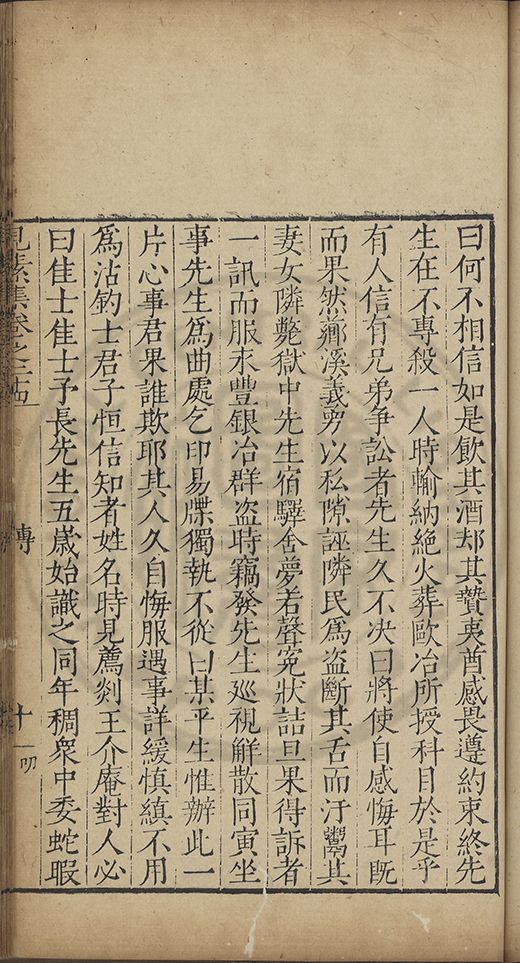 曰何不相信如是飲其酒却其贄夷酋感畏遵約束終先
生在不專殺一人時輸納絶火葬歐冶所授科目於是乎
有人信有兄弟爭訟者先生久不决曰將使自感悔耳既
而果然鄉溪義男以私隙誣隣民爲盗斷其舌而汙鬻其
妻女隣斃獄中先生宿驛舍夢若聲寃狀詰旦果得訴者
一訊而服永豐銀冶群盗時竊發先生巡視觧散同寅坐
事先生爲曲處乞印易牒獨執不從曰某平生惟辦此一
片心事君果誰欺耶其人久自悔服遇事詳緩慎縝不用
爲沽釣士君子恒信知者姓名時見薦剡王介庵對人必
曰佳士佳士予長先生五歳始識之同年稠衆中委蛇暇
見素集卷之二十四 傳 十一